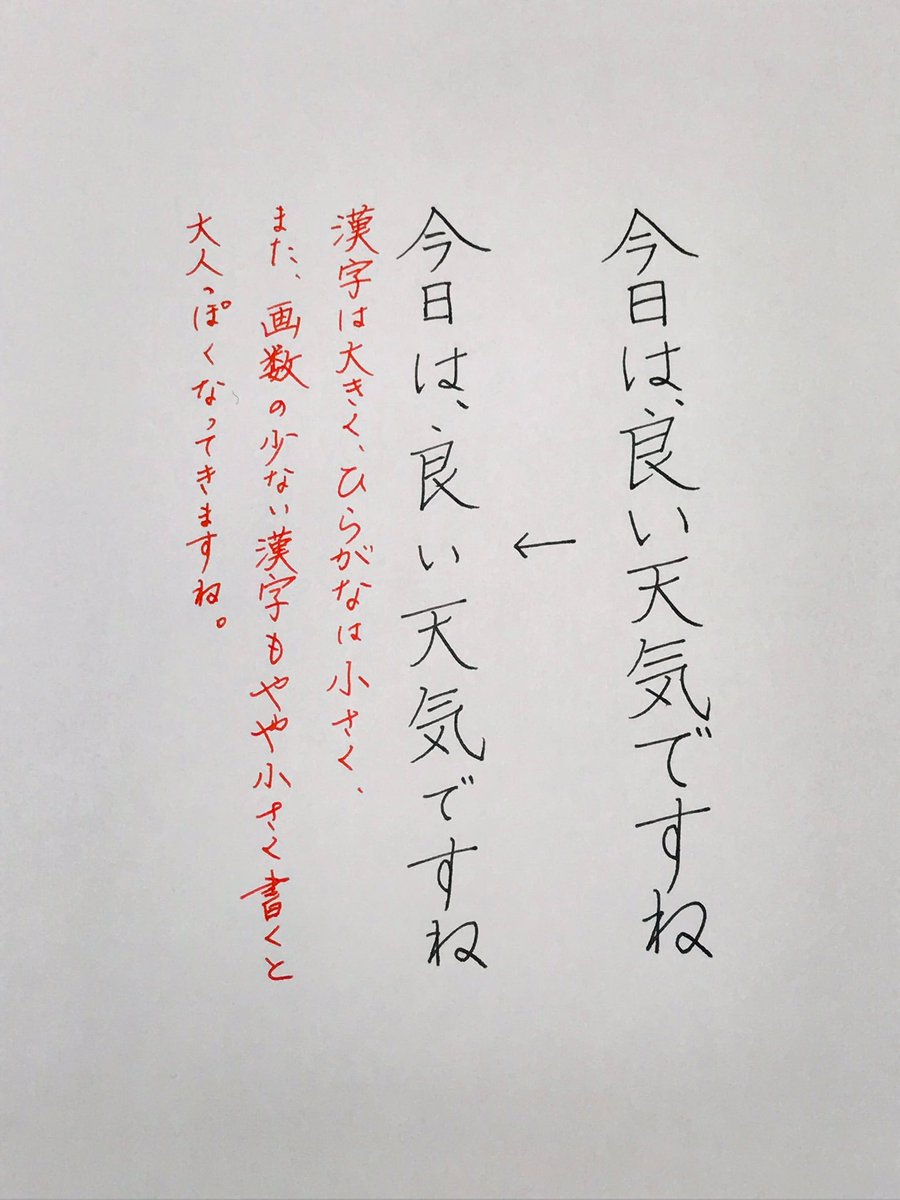 今日は、良い天気ですね
←
今日は、良い天気ですね
漢字は大きく、ひらがなは小さく、
また、画数の少ない漢字もやや小さく書くと
大人っぽくなってきますね。